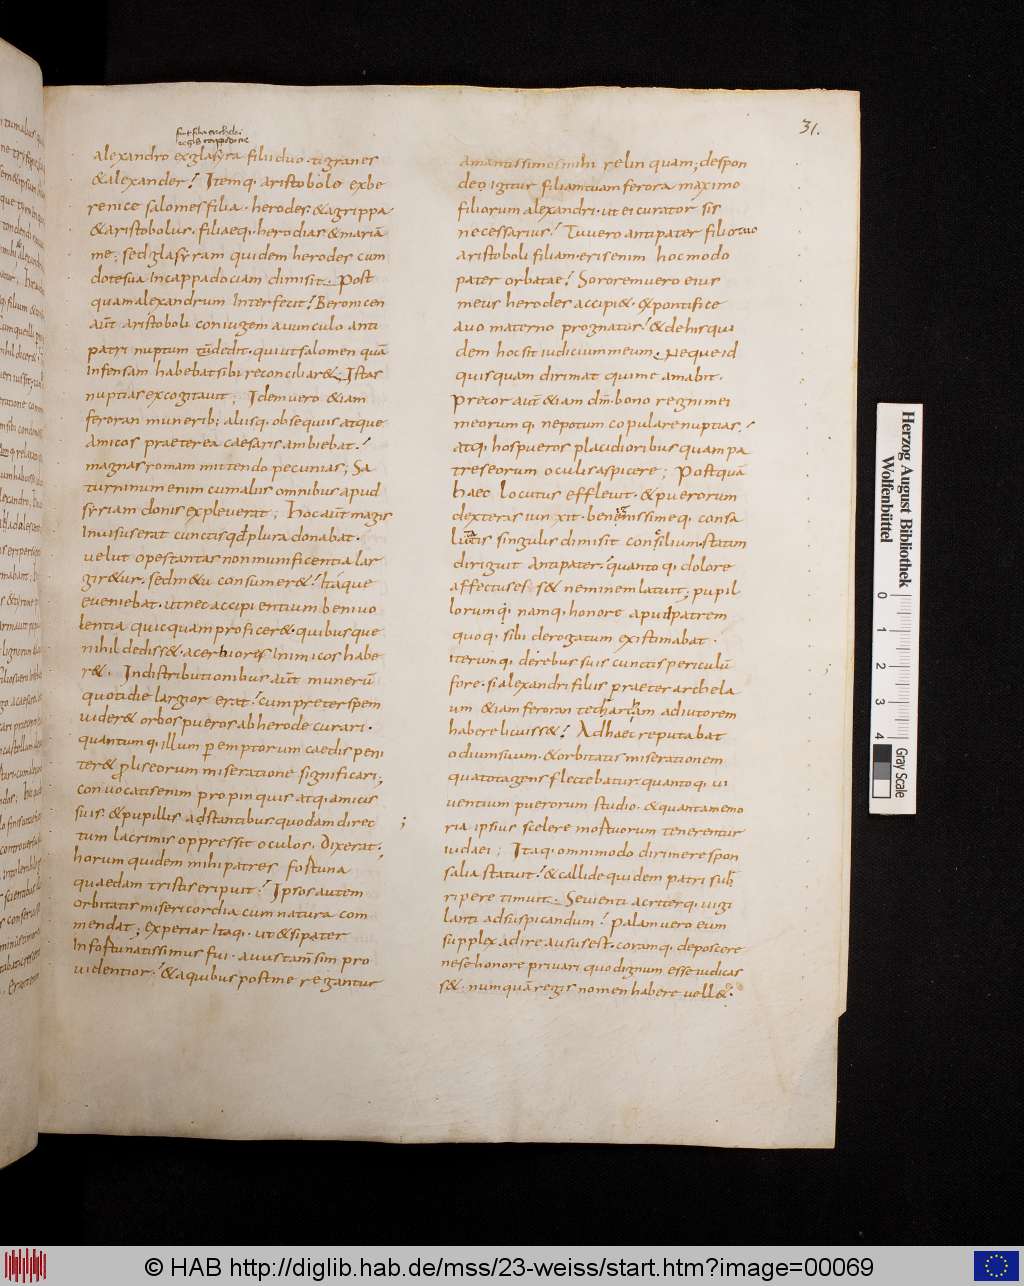 31.
fuit filia archelai
regis cappadocie
alexandro exglafyra filii duo · tigranes
&alexander! Itemq· aristobolo exbe
renice salomes filia · herodes &agrippa
&aristobolus · filiaeq· herodias &mariā
me; sed glafyram quidem herodes cum
dotesua Incappadociam dimisit. Post
quam alexandrum Interfecit! Beronicen
aut̄ aristoboli coniugem auunculo anti
patri nuptum tūdedit · qui ut salomen quā
Infensam habebat sibi reconciliar& . Istas
nuptias excogitauit; Idem uero &iam
feroran munerib; aliisq· obsequiis atque
amicos praeterea caesaris ambiebat!
magnas romam mittendo pecunias; Sa
turninum enim cum aliis omnibus apud
syriam donis expleuerat; Hoc aut̄ magis
Inuisus erat cunctis qđ plura donabat ·
uelut opes tantas non munificentia lar
gir&ur · sed m&u consumer&! Itaque
eueniebat · ut nec accipientium beniuo
lentia quicquam proficer& · quibus que
nihil dediss& · acerbiores Inimicos habe
r& . Indistributionibus aut̄ munerū
quotidie largior erat! cum preter spem
uider& orbos pueros ab herode curari ·
quantumq· illum peremptorum caedis peni
ter& pliseorum miseratione significari;
Conuocatis enim propinquis atq· amicis
suis · &pupillis adstantibus quodam direc
tum lacrimis oppressit oculos · Dixerat!
horum quidem mihi patres fortuna
quaedam tristis eripuit! Ipsos autem
orbitatis misericordia cum natura com
mendat; experiar Itaq· ut &si pater
Infortunatissimus fui · auus tam̄ sim pro
uidentior! &a quibus post me regantur
amantissimos mihi relinquam; despon
deo igitur filiam tuam ferora maximo
filiorum alexandri · ut ei curator sis
necessarius! Tu uero antipater filio tuo
aristoboli filiam · eris enim hoc modo
pater orbatae! Sororem uero eius
meus herodes accipi& · ex pontifice
auo materno prognatus! &de his qui
dem hoc sit iudicium meum. Neque id
quisquam dirimat qui me amabit ·
Precor aut̄ &iam dm̄ · bono regni mei
meorumq· nepotum copulare nuptias!
atq· hos pueros placidioribus quam pa
tres eorum oculis aspicere; Postquā
haec locutus effleuit · &puerorum
dexteras iunxit · benignissimeq· conso
latis singulis dimisit consilium · statim
diriguit Antipater! quantoq· dolore
affectus es& s& neminem latuit; pupil
lorumq· namq· honore apud patrem
quoq· sibi derogatum existimabat ·
iterumq· de rebus suis cunctis periculū
fore · si alexandri filius praeter archela
um &iam feroran tetrarcham adiutorem
habere licuiss&! Ad haec reputabat
odium suum · &orbitatis miserationem
qua tota gens flectebatur · quantoq· ui
uentium puerorum studio · &quanta memo
ria ipsius scelere mortuorum tenerentur
iudaei; Itaq· omnimodo dirimere spon
salia statuit! &callide quidem patri sub
ripere timuit. Seuienti acriterq· uigi
lanti ad suspicandum! Palam uero eum
supplex adire ausus est · coramq· deposcere
ne se honore priuari quo dignum esse iudicas
s& · numquā regis nomen habere uell& ·
Herzog August Bibliothek
Wolfenbüttel
0 1 2 3 4
Gray Scale
© HAB http://diglib.hab.de/mss/23-weiss/start.htm?image=00069